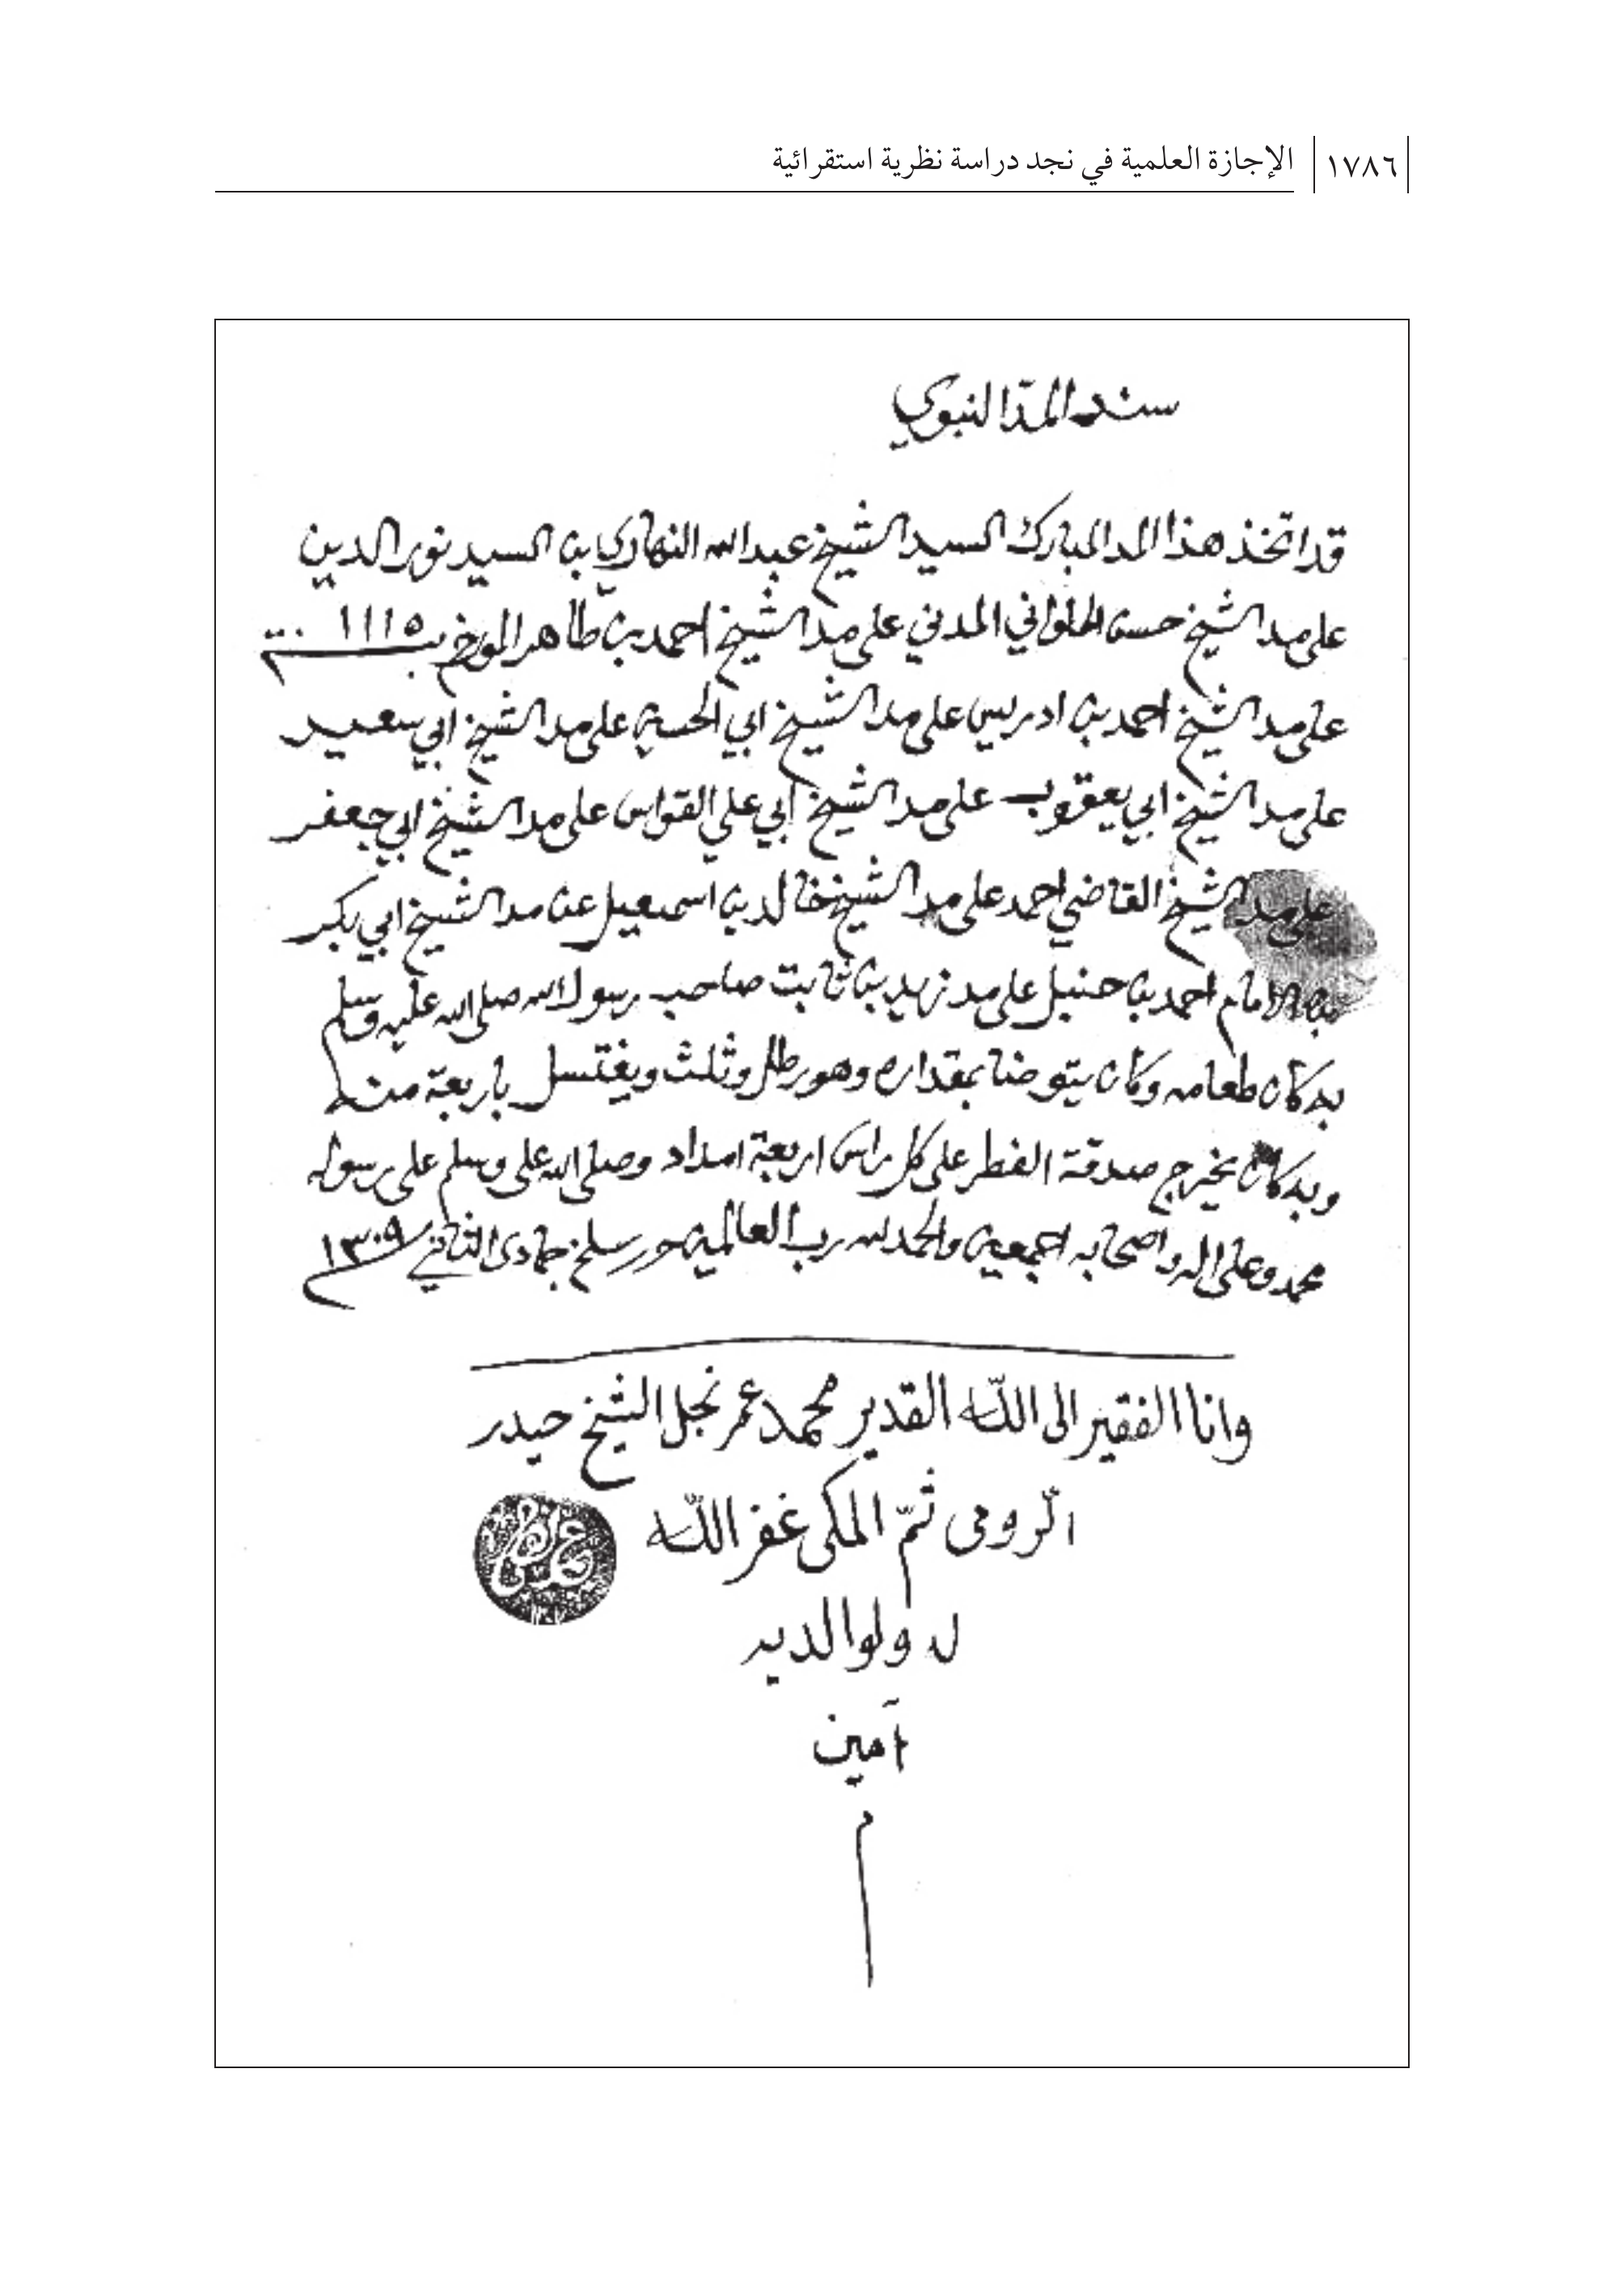 ١٧٨٦ الإجازة العلمية في نجد دراسة نظرية استقرائية
سند المدّ النبوي
قد اتخذ هذا المد المبارك السيد الشيخ عبد الله النهاري بن السيد نور الدين
على مد الشيخ حسن الحلواني المدني على مد الشيخ احمد بن طاهر المورخ ١١١٥ سنة
على مد الشيخ احمد بن ادريس على مد الشيخ ابي الحسين على مد الشيخ ابي سعيد
على مد الشيخ ابي يعقوب على مد الشيخ أبي علي القواس على مد الشيخ ابي جعفر
على مد الشيخ القاضي احمد على مد الشيخ خالد بن اسمعيل عن مد الشيخ ابي بكر
امام احمد بن حنبل على مد زيد بن ثابت صاحب رسول الله صلى الله عليه وسلم
به كان طعامه وكان يتوضا بمقداره وهو رطل وثلث ويغتسل باربعة منه
وبه كان يخرج صدقة الفطر على كل راس اربعة امداد وصلى الله على وسلم على رسوله
محمد وعلى اله واصحابه اجمعين والحمد لله رب العالمين حرر سلخ جمادى الثاني ١٣٠٩
وانا الفقير الى اللّه القدير محمد عمر نجل الشيخ حيدر
الرّومى ثمّ المكى غفر اللّه
له ولوالديه
آمين
م